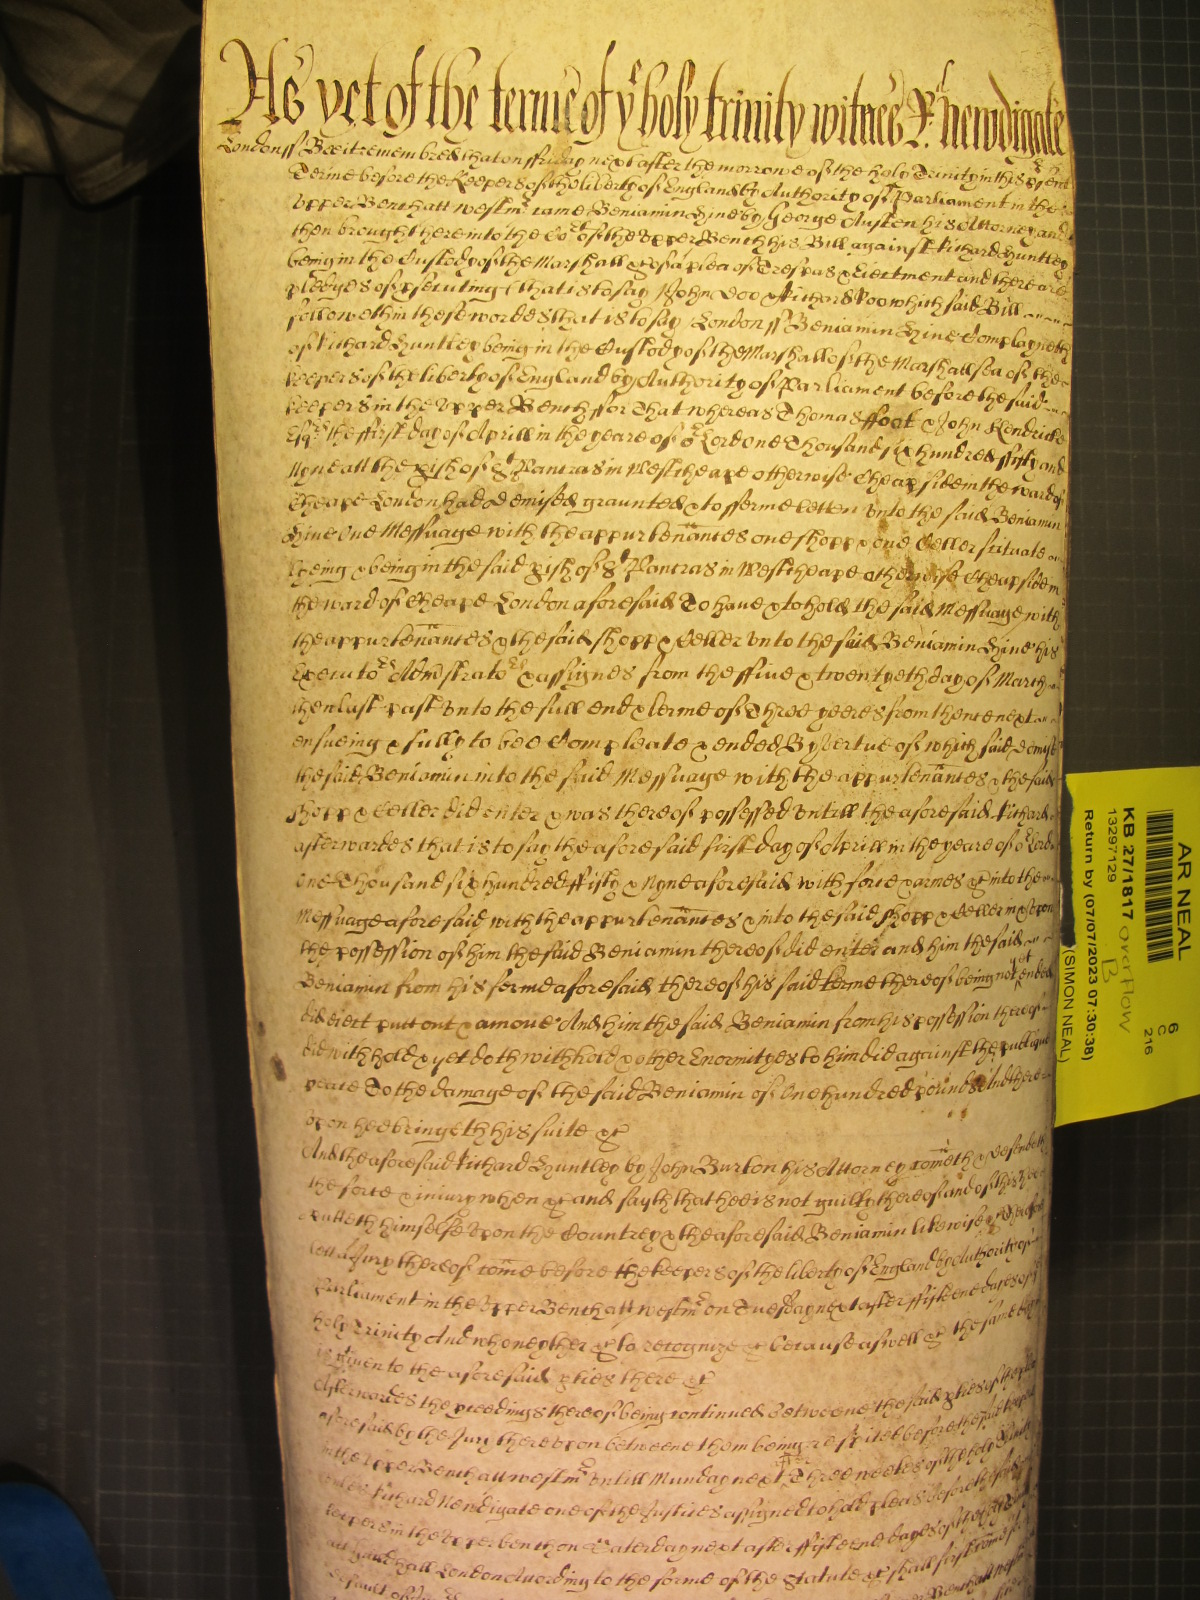 As yet of the terme of ye holy trinity witnes R: Newdigate
London ss Bee it remembred that on ffriday next after the morrowe of the holy Trinity in this psent
Terme before the Keepers of the liberty of England by Authority of Parliament in the
Vpper Bench att westmr came Beniamin Hine by George Austen his Attorney and
then brought here into the Cort of the Vpper Bench his Bill against Richard Huntley
being in the Custody of the Marshall &c of a plea of Trespas & Eiectment and there are
pledges of psecuting (that is to say John Doo & Richard Roo which said Bill
followeth in these wordes that is to say London ss Beniamin Hine Complayneth
of Richard Huntley being in the Custody of the Marshall of the Marshallsea of the
keepers of the liberty of England by Authority of Parliament before the said
keepers in the Vpper Bench ffor that whereas Thomas ffoot & John Kendricke
Esqrs the first day of Aprill in the yeare of or Lord one Thousand six hundred fifty and
Nyne att the pish of St Pancras in Westcheape otherwise Cheapside in the ward of
Cheape London had demised graunted & to fferme letten vnto the said Beniamin
Hine One Messuage with the appurtenances one shopp & one Celler scituate
lyeing & being in the said pish of St Pancras in Westcheape otherwise Cheapside in
the ward of Cheape London aforesaid To have & to hold the said Messuage with
the appurtenances & the said shopp & Celler vnto the said Beniamin Hine his
Executors Admstrators & assignes from the ffiue & twentyeth day of March
then last past vnto the full end & terme of Three yeeres from thence next
ensueing & fully to bee Compleate & ended By vertue of which said demise
the said Beniamin into the said Messuage with the appurtenances & the said
shopp & Celler did enter & was thereof possessed vntill the aforesaid Richard
afterwardes that is to say the aforesaid first day of Aprill in the yeare of or Lord
one Thousand six hundred ffifty & Nyne aforesaid with force & armes &c into the
Messuage aforesaid with the appurtenances & into the said shopp & Celler in & vpon
the possession of him the said Beniamin thereof did enter and him the said
Beniamin from his ferme aforesaid thereof his said terme thereof being not yet ended
did eiect putt out & amoue And him the said Beniamin from his possession thereof
did withhold & yet doth withhold & other Enormityes to him did against the publique
peace To the damage of the said Beniamin of One hundred pounds And there
vpon hee bringeth his suite &c
And the aforesaid Richard Huntley by John Burton his Attorney cometh & defendeth
the force & iniury when &c and sayth that hee is not guilty thereof and of this hee
putteth himselfe vpon the Countrey & the aforesaid Beniamin likewise &c Therefore
lett a Jury thereof come before the keepers of the liberty of England by Authority of
Parliament in the Vpper Bench att westmr on Tuesday next after ffifteene dayes of the
holy Trinity And who neyther &c to recognize &c because aswell &c the same day
is given to the aforesaid pties there &c
Afterwardes the pceedings thereof being continued betweene the said pties of the plea
aforesaid by the Jury therevpon betweene them being respited before the said keepers
in the Vpper Bench att westmr vntill Munday next after Three weekes of the holy Trinity
vnles Richard Newdigate one of the Justices assigned to hold pleas before the said
keepers in the Vpper bench on Saterday next after ffifteene dayes of the holy
att Guildhall London According to the forme of the Statute &c shall first come
default of
AR NEAL
KB 27/1817 overflow
B
13297129
Return by (07/07/2023 07:30:38)
(SIMON NEAL)
6
C
216